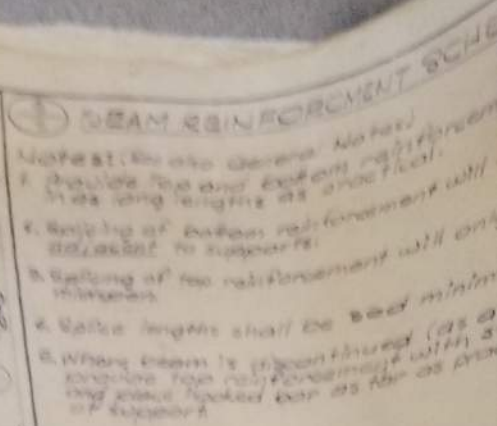 BEAM REINFORCMENT SCHE
Notes: (See also General Notes)
1. Provide top and bottom reinforcem
in as long lengths as practical.
2. Splicing of bottom reinforcement will
adjacent to supports.
3. Splicing of top reinforcement will on
midspan
4. Splice lengths shall be minim
5. Where beam is discontinued (as a
provide top reinforcement with a
and hooked bar as far as prac
of support